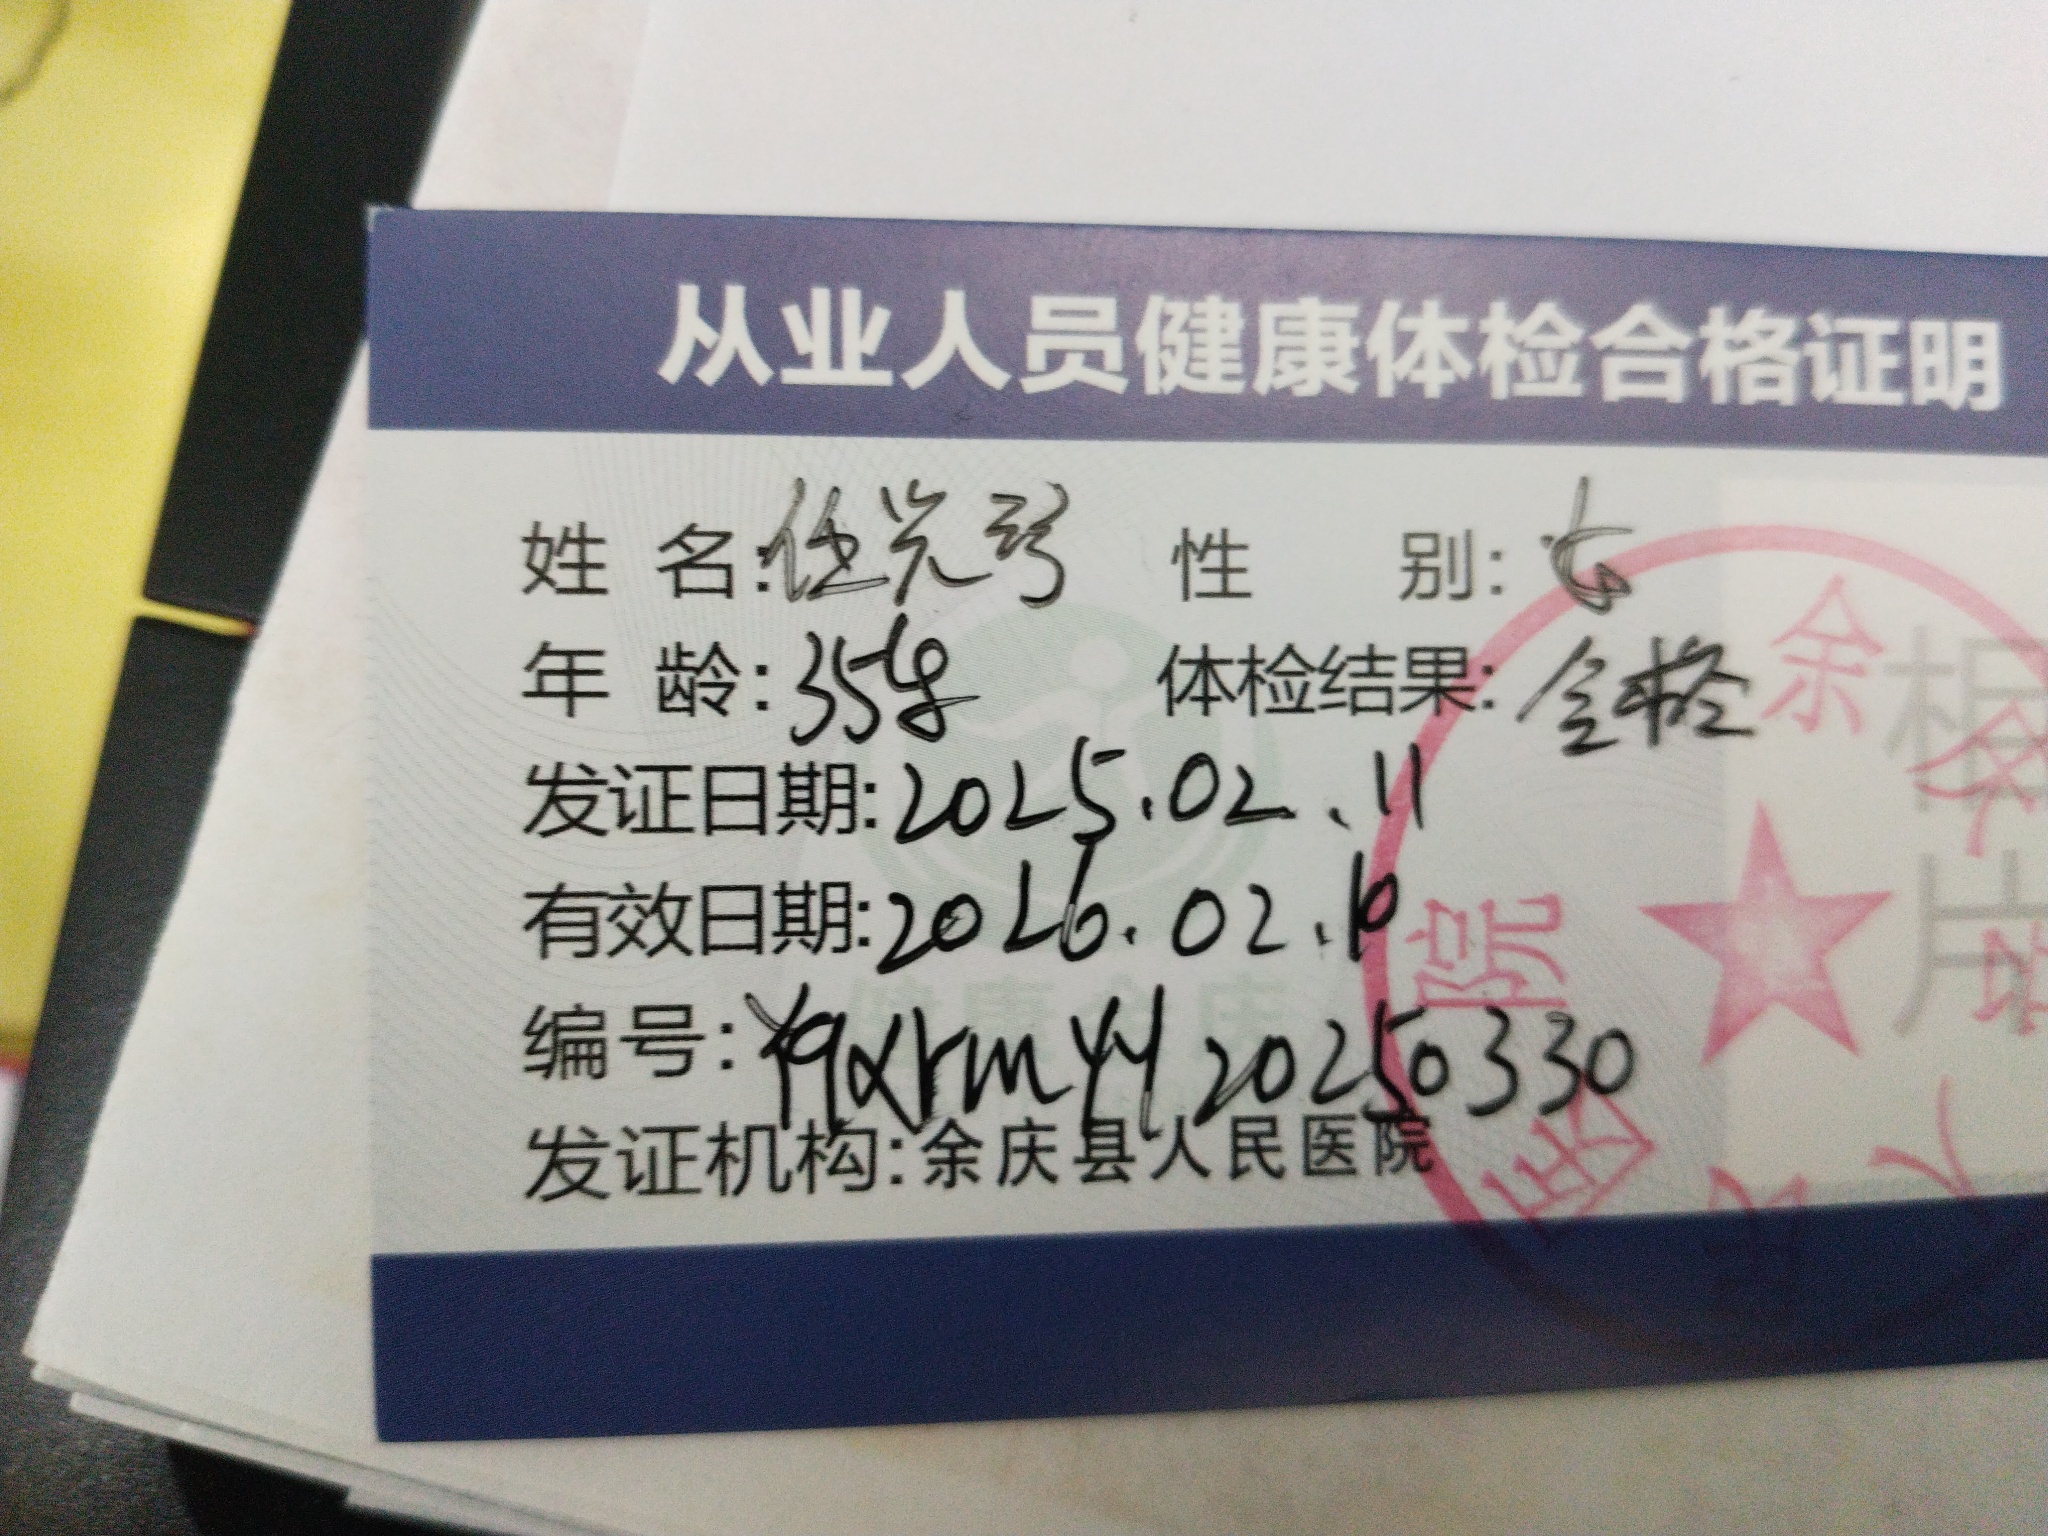 从业人员健康体检合格证明
姓 名: 任光琴 性 别: 女
年 龄: 35岁 体检结果: 合格
发证日期: 2025.02.11
有效日期: 2026.02.10
编号: Yqxrmyy20250330
发证机构: 余庆县人民医院
相
片
余 庆 医 院